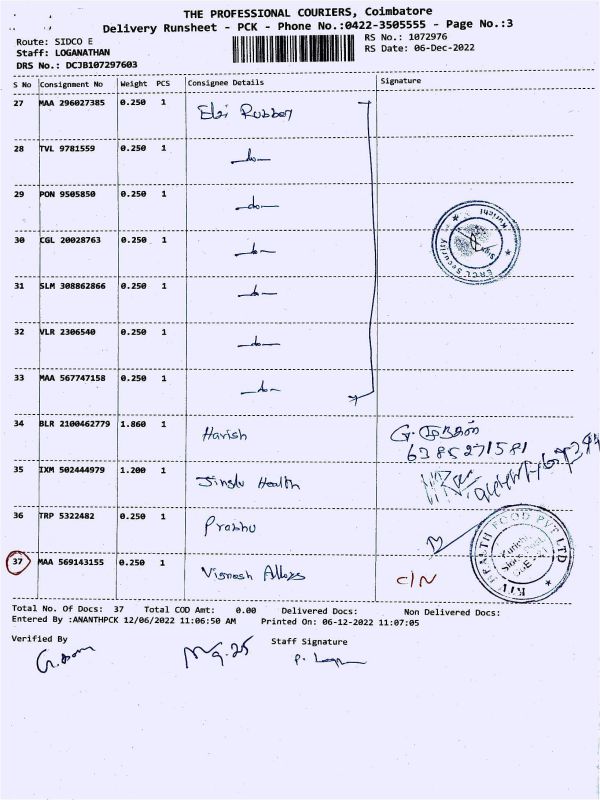 THE PROFESSIONAL COURIERS, Coimbatore
Delivery Runsheet - PCK - Phone No.:0422-3505555 - Page No.:3
Route: SIDCO E
Staff: LOGANATHAN
DRS No.: DCJB107297603
RS No.: 1072976
RS Date: 06-Dec-2022
S No Consignment No Weight PCS Consignee Details Signature
27 MAA 296027385 0.250 1 Elgi Rubber
28 TVL 9781559 0.250 1 -do-
29 PON 9505850 0.250 1 -do-
30 CGL 20028763 0.250 1 -do-
31 SLM 308862866 0.250 1 -do-
32 VLR 2306540 0.250 1 -do-
33 MAA 567747158 0.250 1 -do-
ERCL Security Kurichi
34 BLR 2100462779 1.860 1 Harish
6385271581
35 IXM 502444979 1.200 1 Health
36 TRP 5322482 0.250 1 Prabhu
HEALTH FOOD PVT LTD
Kurichi
37 MAA 569143155 0.250 1 Alloys C/N
Total No. Of Docs: 37 Total COD Amt: 0.00 Delivered Docs: Non Delivered Docs:
Entered By :ANANTHPCK 12/06/2022 11:06:50 AM Printed On: 06-12-2022 11:07:05
Verified By Staff Signature